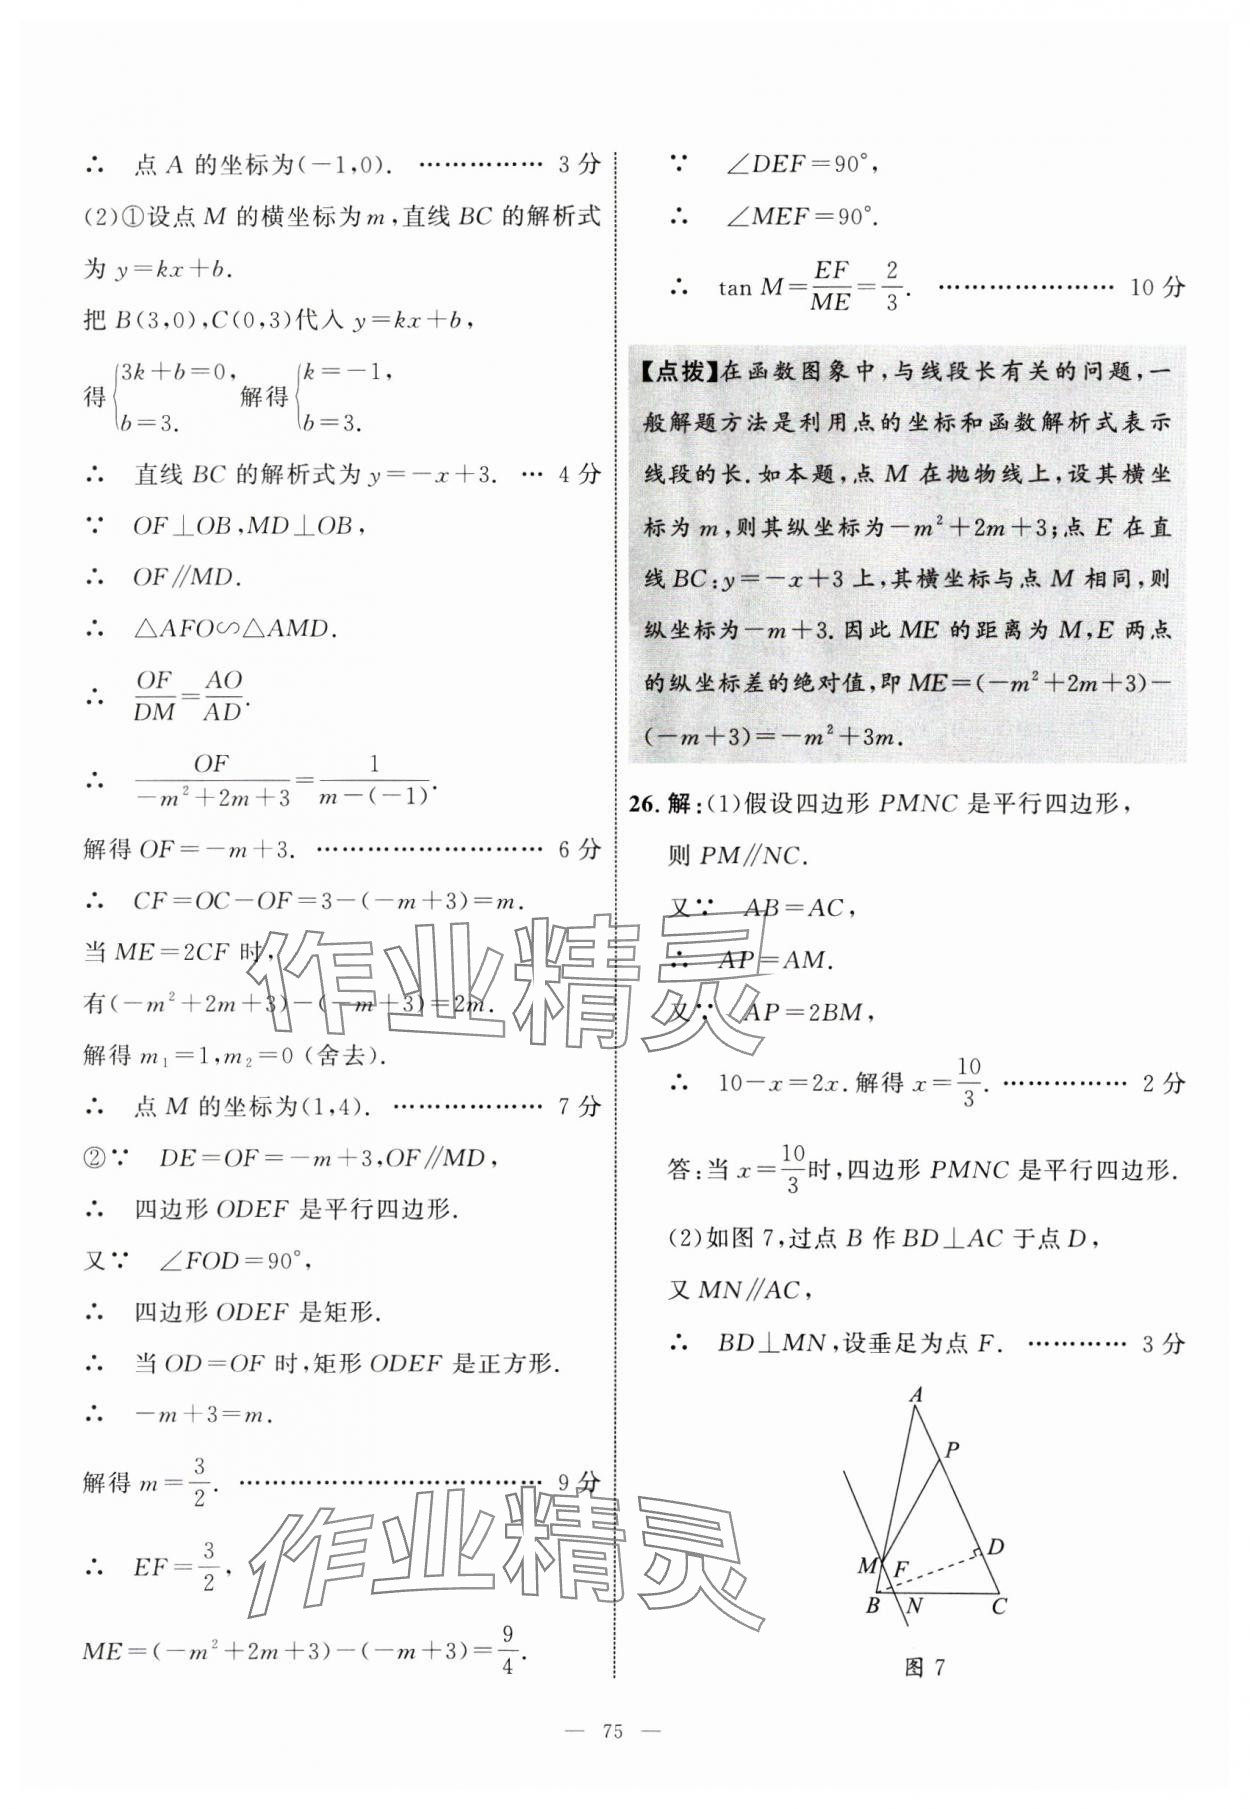 ∴ 点 A 的坐标为(-1,0). ……………… 3 分
(2)①设点 M 的横坐标为 m,直线 BC 的解析式
为 y=kx+b.
把 B(3,0),C(0,3)代入 y=kx+b,
得{3k+b=0, b=3. 解得{k=-1, b=3.
∴ 直线 BC 的解析式为 y=-x+3. … 4 分
∵ OF⊥OB,MD⊥OB,
∴ OF∥MD.
∴ △AFO∽△AMD.
∴ OF/DM=AO/AD.
∴ OF/(-m²+2m+3)=1/(m-(-1)).
解得 OF=-m+3. ……………………… 6 分
∴ CF=OC-OF=3-(-m+3)=m.
当 ME=2CF 时,
有(-m²+2m+3)-(-m+3)=2m.
解得 m₁=1,m₂=0 (舍去).
∴ 点 M 的坐标为(1,4). ……………… 7 分
②∵ DE=OF=-m+3,OF∥MD,
∴ 四边形 ODEF 是平行四边形.
又∵ ∠FOD=90°,
∴ 四边形 ODEF 是矩形.
∴ 当 OD=OF 时,矩形 ODEF 是正方形.
∴ -m+3=m.
解得 m=3/2. ……………………………… 9 分
∴ EF=3/2,
ME=(-m²+2m+3)-(-m+3)=9/4.
∵ ∠DEF=90°,
∴ ∠MEF=90°.
∴ tan M=EF/ME=2/3. ………………… 10 分
【点拨】在函数图象中,与线段长有关的问题,一
般解题方法是利用点的坐标和函数解析式表示
线段的长.如本题,点 M 在抛物线上,设其横坐
标为 m,则其纵坐标为-m²+2m+3;点 E 在直
线 BC:y=-x+3 上,其横坐标与点 M 相同,则
纵坐标为-m+3.因此 ME 的距离为 M,E 两点
的纵坐标差的绝对值,即 ME=(-m²+2m+3)-
(-m+3)=-m²+3m.
26. 解:(1)假设四边形 PMNC 是平行四边形,
则 PM∥NC.
又∵ AB=AC,
∴ AP=AM.
又∵ AP=2BM,
∴ 10-x=2x.解得 x=10/3. …………… 2 分
答:当 x=10/3时,四边形 PMNC 是平行四边形.
(2)如图 7,过点 B 作 BD⊥AC 于点 D,
又 MN∥AC,
∴ BD⊥MN,设垂足为点 F. ………… 3 分
A
P
D
M F
B N C
图 7
作业精灵
作业精灵
— 75 —